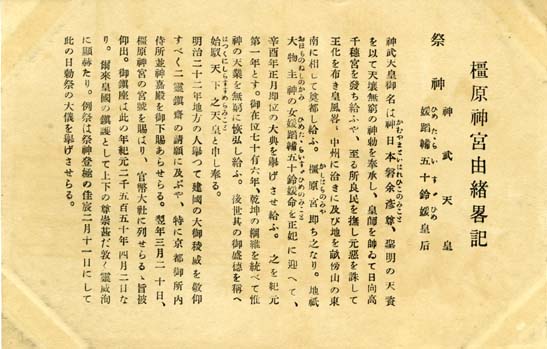 橿原神宮由緒畧記
祭神
神武天皇
媛蹈韛五十鈴媛皇后
神武天皇御名は神日本磐余彦尊、聖明の天資
を以て天壤無窮の神勅を奉承し、皇師を帥ゐて日向高
千穗宮を發し給ふや、至る所良民を撫し元惡を誅して
王化を布き皇風普く中州に洽きに及び地を畝傍山の東
南に相して奠都し給ふ。橿原宮即ち之なり。地祇
大物主神の女媛蹈韛五十鈴媛命を正妃に迎へて、
辛酉年正月即位の大典を擧げさせ給ふ。之を紀元
第一年とす。御在位七十有六年、乾坤の綱維を統べて惟
神の天業を無窮に恢弘し給ふ。後世其の御盛德を稱へ
始馭天下之天皇と申し奉る。
明治二十二年地方の人擧つて建國の大御稜威を敬仰
すべく二靈鎭齋の請願に及ぶや、特に京都御所内
侍所並神嘉殿を御下賜あらせらる。翌年三月二十日、
橿原神宮の宮號を賜はり、官幣大社に列せらるゝ旨被
仰出。御鎭座は此の年紀元二千五百五十年四月二日な
り。爾來皇國の鎭護として上下の尊崇甚だ敦く靈威洵
に顯赫たり。例祭は祭神登極の佳辰二月十一日にして
此の日勅祭の大儀を擧げさせらる。